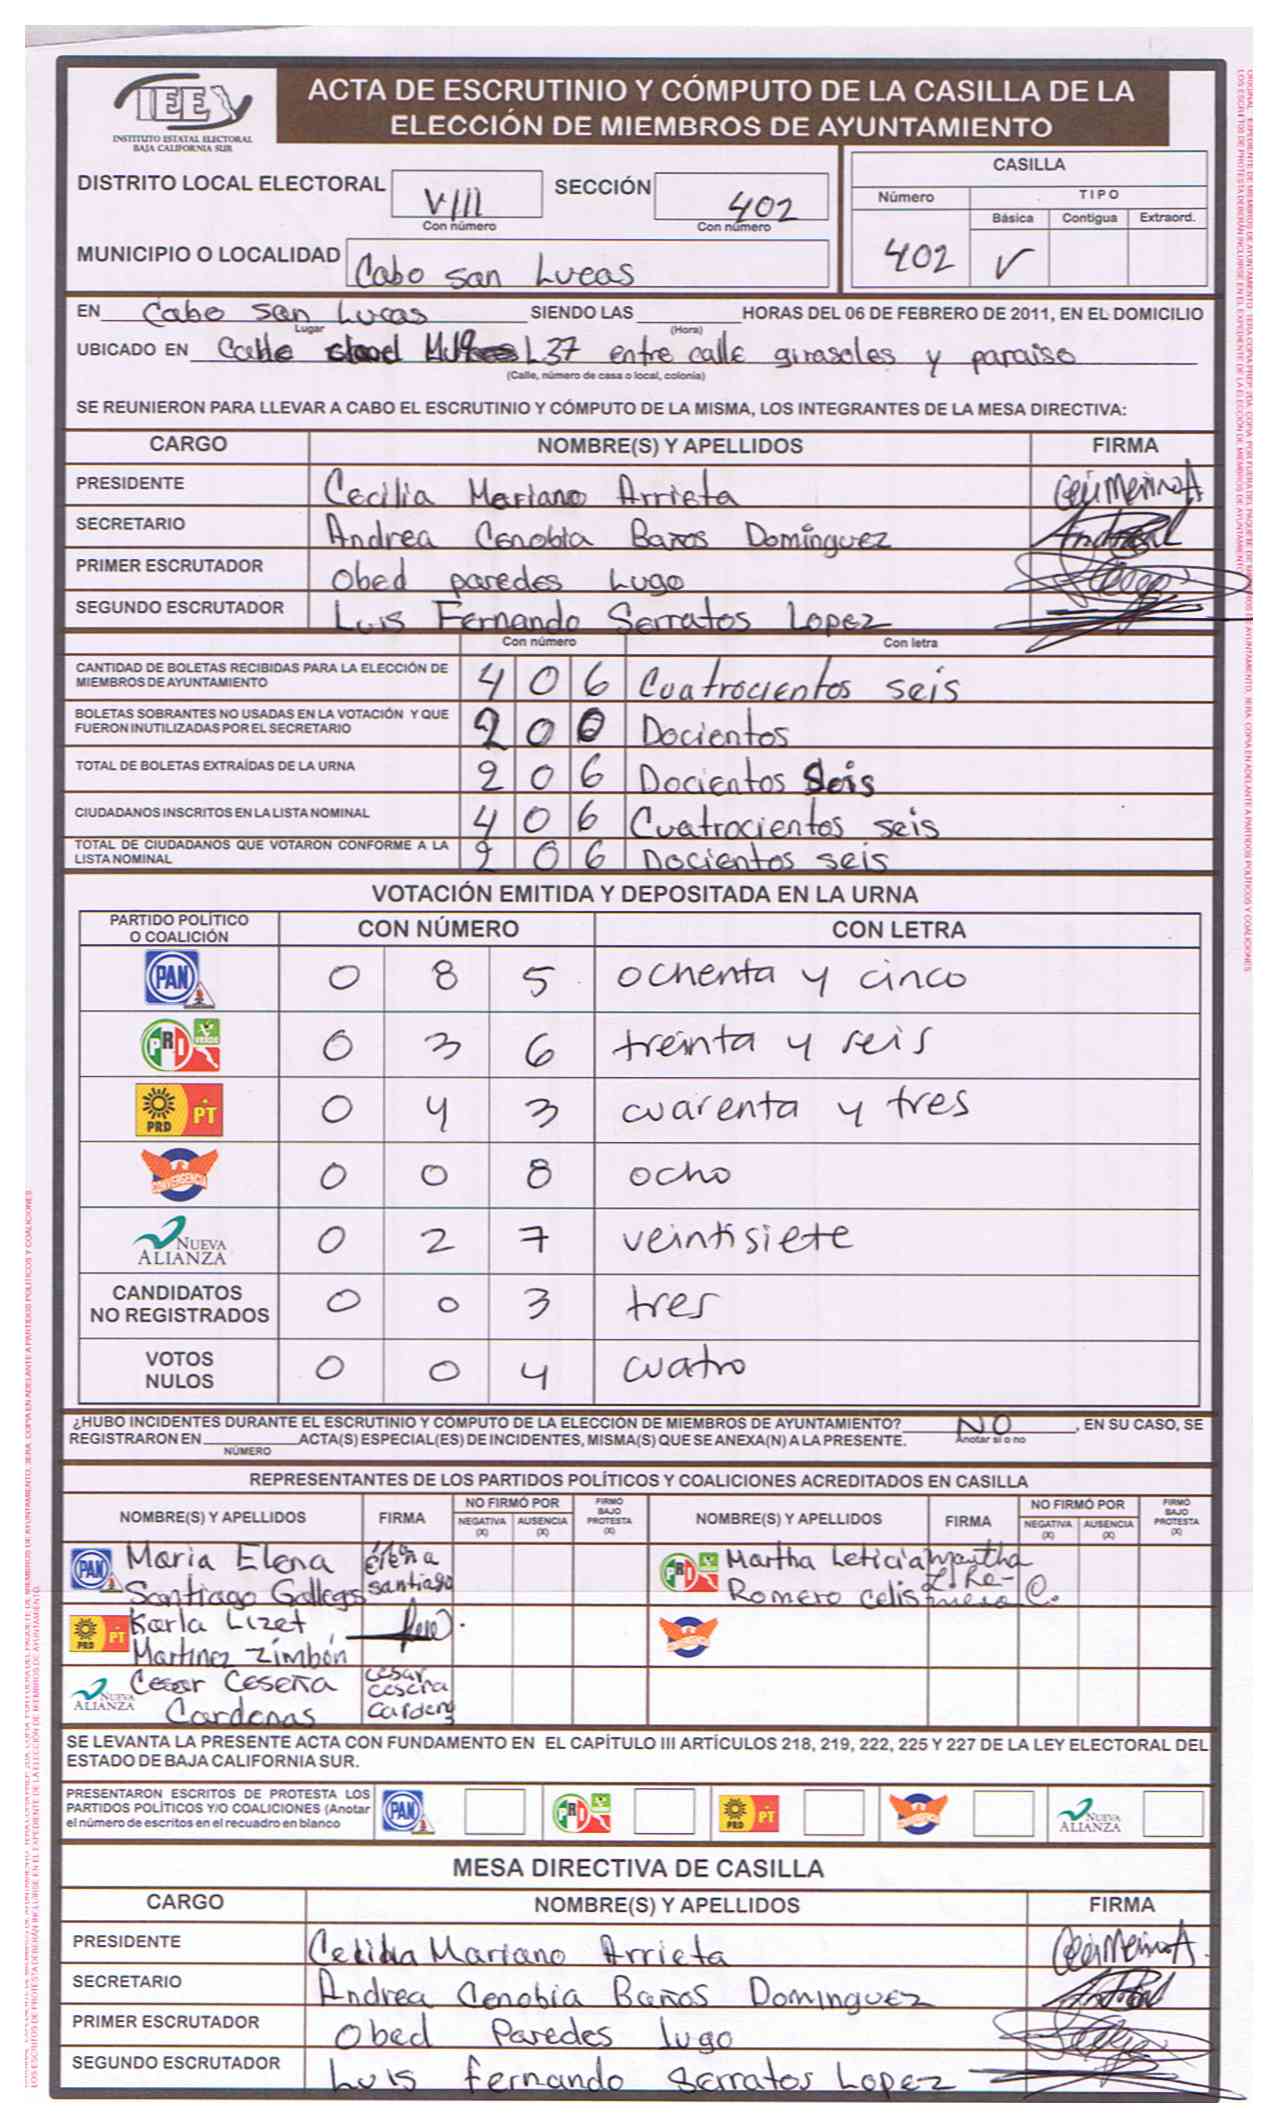 IEEX
INSTITUTO ESTATAL ELECTORAL
BAJA CALIFORNIA SUR
ACTA DE ESCRUTINIO Y CÓMPUTO DE LA CASILLA DE LA
ELECCIÓN DE MIEMBROS DE AYUNTAMIENTO
DISTRITO LOCAL ELECTORAL VIII SECCIÓN 402
Con número Con número
MUNICIPIO O LOCALIDAD Cabo san Lucas
CASILLA
Número TIPO
Básica Contigua Extraord.
402 ✓
EN Cabo san Lucas SIENDO LAS HORAS DEL 06 DE FEBRERO DE 2011, EN EL DOMICILIO
Lugar (Hora)
UBICADO EN Calle L 37 entre calle girasoles y paraiso
(Calle, número de casa o local, colonia)
SE REUNIERON PARA LLEVAR A CABO EL ESCRUTINIO Y CÓMPUTO DE LA MISMA, LOS INTEGRANTES DE LA MESA DIRECTIVA:
CARGO NOMBRE(S) Y APELLIDOS FIRMA
PRESIDENTE Cecilia Mariano Arrieta
SECRETARIO Andrea Cenobia Baños Domínguez
PRIMER ESCRUTADOR Obed paredes Lugo
SEGUNDO ESCRUTADOR Luis Fernando Serratos Lopez
Con número Con letra
CANTIDAD DE BOLETAS RECIBIDAS PARA LA ELECCIÓN DE
MIEMBROS DE AYUNTAMIENTO 4 0 6 Cuatrocientos seis
BOLETAS SOBRANTES NO USADAS EN LA VOTACIÓN Y QUE
FUERON INUTILIZADAS POR EL SECRETARIO 2 0 0 Docientos
TOTAL DE BOLETAS EXTRAÍDAS DE LA URNA 2 0 6 Docientos Seis
CIUDADANOS INSCRITOS EN LA LISTA NOMINAL 4 0 6 Cuatrocientos seis
TOTAL DE CIUDADANOS QUE VOTARON CONFORME A LA
LISTA NOMINAL 2 0 6 Docientos seis
VOTACIÓN EMITIDA Y DEPOSITADA EN LA URNA
PARTIDO POLÍTICO
O COALICIÓN CON NÚMERO CON LETRA
PAN 0 8 5 ochenta y cinco
PRI VERDE 0 3 6 treinta y seis
PRD PT 0 4 3 cuarenta y tres
CONVERGENCIA 0 0 8 ocho
NUEVA ALIANZA 0 2 7 veintisiete
CANDIDATOS
NO REGISTRADOS 0 0 3 tres
VOTOS
NULOS 0 0 4 cuatro
¿HUBO INCIDENTES DURANTE EL ESCRUTINIO Y CÓMPUTO DE LA ELECCIÓN DE MIEMBROS DE AYUNTAMIENTO? NO , EN SU CASO, SE
Anotar sí o no
REGISTRARON EN ACTA(S) ESPECIAL(ES) DE INCIDENTES, MISMA(S) QUE SE ANEXA(N) A LA PRESENTE.
NÚMERO
REPRESENTANTES DE LOS PARTIDOS POLÍTICOS Y COALICIONES ACREDITADOS EN CASILLA
NOMBRE(S) Y APELLIDOS FIRMA NO FIRMÓ POR NEGATIVA (X) AUSENCIA (X) FIRMÓ BAJO PROTESTA (X) NOMBRE(S) Y APELLIDOS FIRMA NO FIRMÓ POR NEGATIVA (X) AUSENCIA (X) FIRMÓ BAJO PROTESTA (X)
PAN Maria Elena elena PRI Martha Leticia Martha
Santiago Gallegs santiago Romero Celis C.
PRD PT Karla Lizet
Martinez Zimbón
NUEVA ALIANZA Cesar Ceseña cesar ceseña
Cardenas
SE LEVANTA LA PRESENTE ACTA CON FUNDAMENTO EN EL CAPÍTULO III ARTÍCULOS 218, 219, 222, 225 Y 227 DE LA LEY ELECTORAL DEL
ESTADO DE BAJA CALIFORNIA SUR.
PRESENTARON ESCRITOS DE PROTESTA LOS
PARTIDOS POLÍTICOS Y/O COALICIONES (Anotar
el número de escritos en el recuadro en blanco
PAN PRI PRD PT NUEVA ALIANZA
MESA DIRECTIVA DE CASILLA
CARGO NOMBRE(S) Y APELLIDOS FIRMA
PRESIDENTE Cecilia Mariano Arrieta
SECRETARIO Andrea Cenobia Baños Dominguez
PRIMER ESCRUTADOR Obed Paredes lugo
SEGUNDO ESCRUTADOR Luis fernando Serratos Lopez